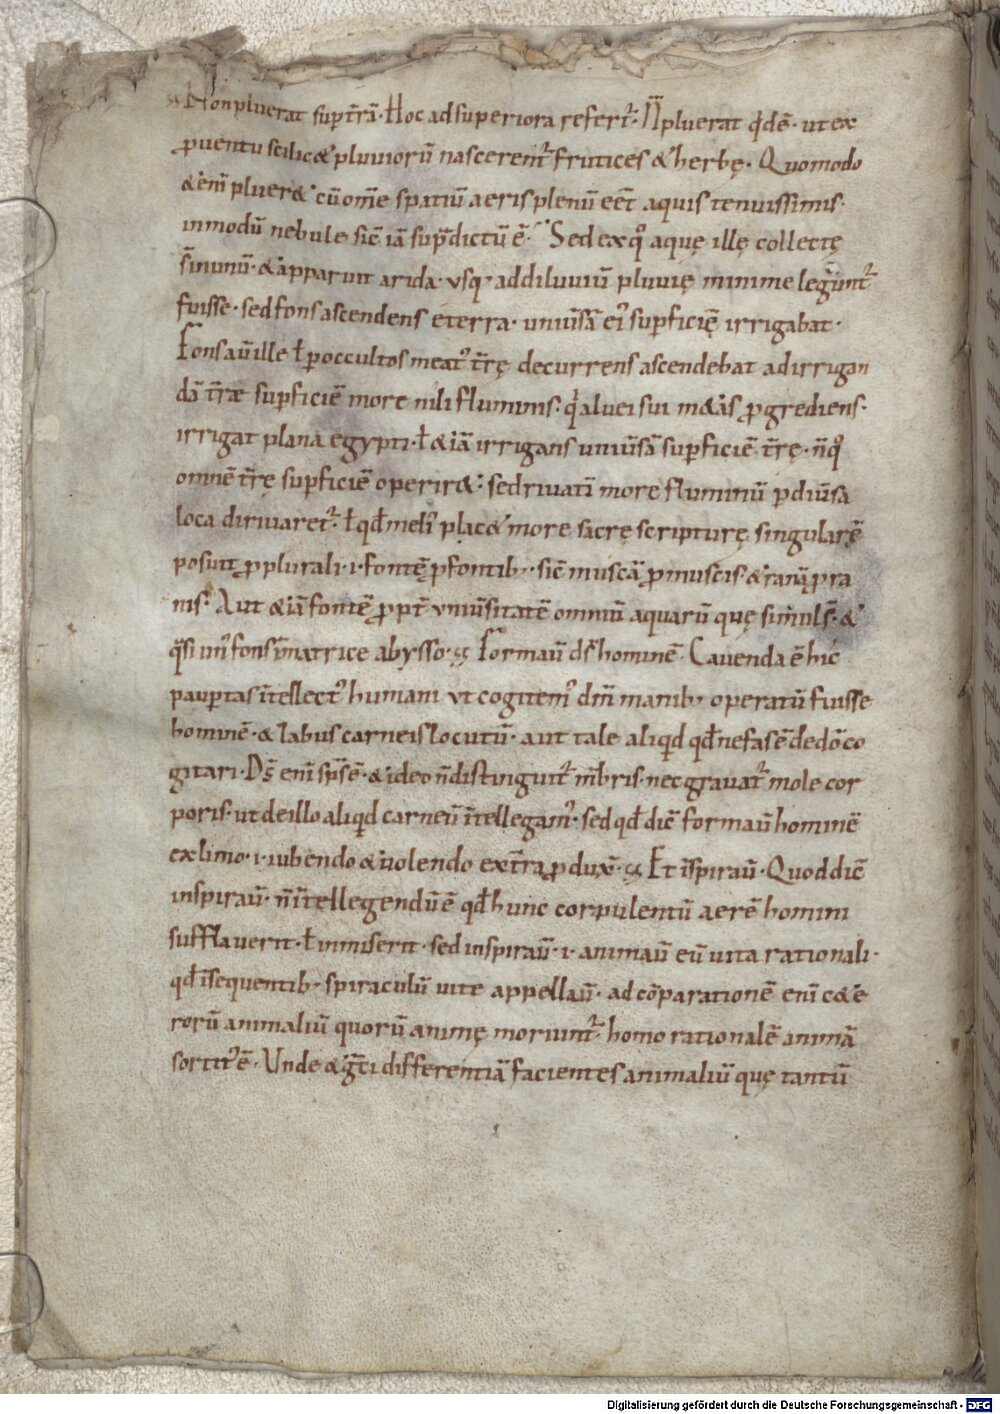 Non pluerat sup̄ t̄rā. Hoc ad superiora refert᷑. N̄ pluerat qͥdē. ut ex
ꝓuentu scilic& pluuiorū nascerent᷑ frutices & herbę. Quomodo
& eni᷒ pluer& cū om̄e spatiū aeris plenū eēt aquis tenuissimis.
in modū nebule sic̄ iā sup̄dictū ē. Sed ex qͦ aquę illę collectę
s̄ in unū. & apparuit arida. usq; ad diluuiū pluuię minime legunt᷑
fuisse. sed fons ascendens e terra. uniūsā ei᷒ sup̄ficiē irrigabat.
Fons aū ille ł ꝑ occultos meat᷒ t̄rę decurrens ascendebat ad irrigan
dā t̄ræ sup̄ficiē more nili fluminis. qͥ aluei sui m&as ꝓgrediens.
irrigat plana egypti. ł & iā irrigans uniūsā sup̄ficiē t̄rę. n̄ qͦ
omnē t̄rę sup̄ficiē operir&. sed riuatī more fluminū ꝑ diūsa
loca diriuaret᷑. ł qđ meli᷒ plac& more sacrę scripturę singularē
posuit ꝓ plurali .i. fontē ꝓ fontib; sic̄ muscā ꝓ muscis & ranā ꝓ ra
nis. Aut & iā fontē ꝓpt̄ uniūsitatē omniū aquarū quę simul s̄. &
qͣsi un᷒ fons in matrice abysso. Formaū ds̄ hominē. Cauenda ē hic
paup̄tas īntellect᷒ humani ut cogitem᷒ dm̄ manib; operatū fuisse
hominē. & labiis carneis locutū. aut tale aliqͥd qđ nefas ē de dō co
gitari. Ds̄ eni᷒ sp̄s ē. & ideo n̄ distinguit᷑ mēbris. nec grauat᷑ mole cor
poris. ut de illo aliqͥd carneū īntellegam᷒. sed qđ dic̄ formaū hominē
ex limo .i. iubendo & uolendo ex t̄ra ꝓdux̄. Et īspiraū. Quod dic̄
inspiraū. n̄ īntellegendū ē qđ hunc corpulentū aerē homini
sufflauerit. ł inmiserit. sed inspiraū .i. animaū eū uita rationali.
qđ īsequentib; spiraculū uite appellaū. ad cōparationē eni᷒ c&e
rorū animaliū quorū animę moriunt᷑. homo rationalē animā
sortit᷒ ē. Unde & gͣ̄ti differentiā facientes animaliū quę tantū
Digitalisierung gefördert durch die Deutsche Forschungsgemeinschaft - DFG